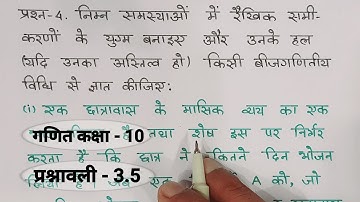 प्रश्न-4. निम्न समस्याओं में रैखिक समी-
करणों के युग्म बनाइए और उनके हल
(यदि उनका अस्तित्व हो) किसी बीजगणितीय
विधि से ज्ञात कीजिए:
(i) एक छात्रावास के मासिक व्यय का एक
गणित कक्षा - 10 तथा शेष इस पर निर्भर
करता है कि छात्र ने कितने दिन भोजन
प्रश्नावली - 3.5 A को, जो